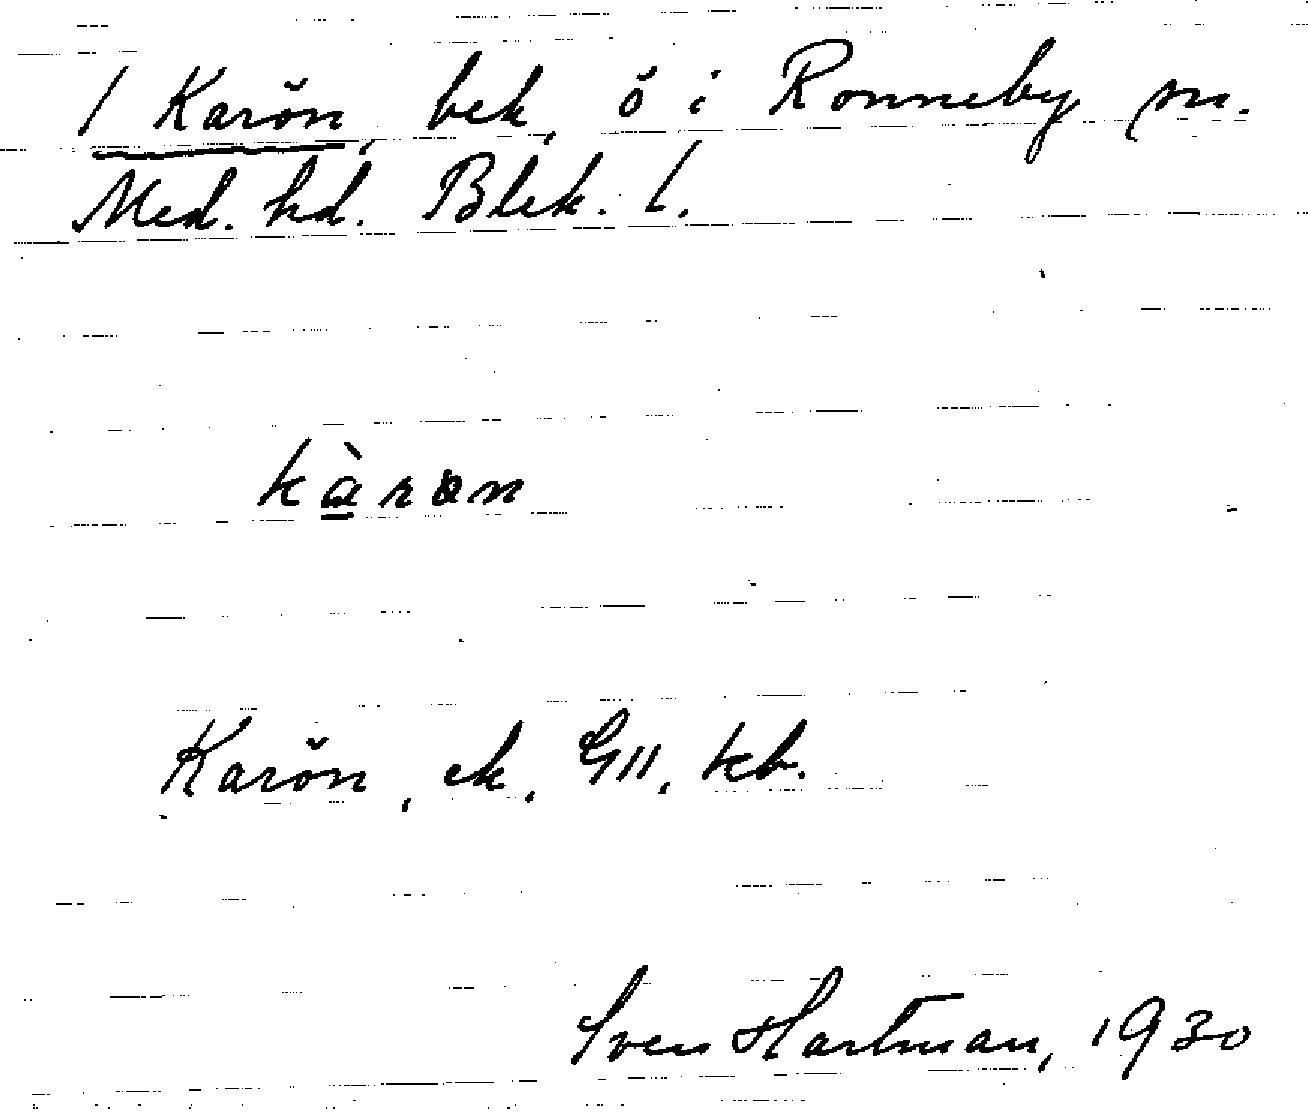 / Karön, bek, ö i Ronneby sn.
Med. hd. Blek. l.
kàrøn
Karön, ek. G11, kb.
Sven Hartman, 1930